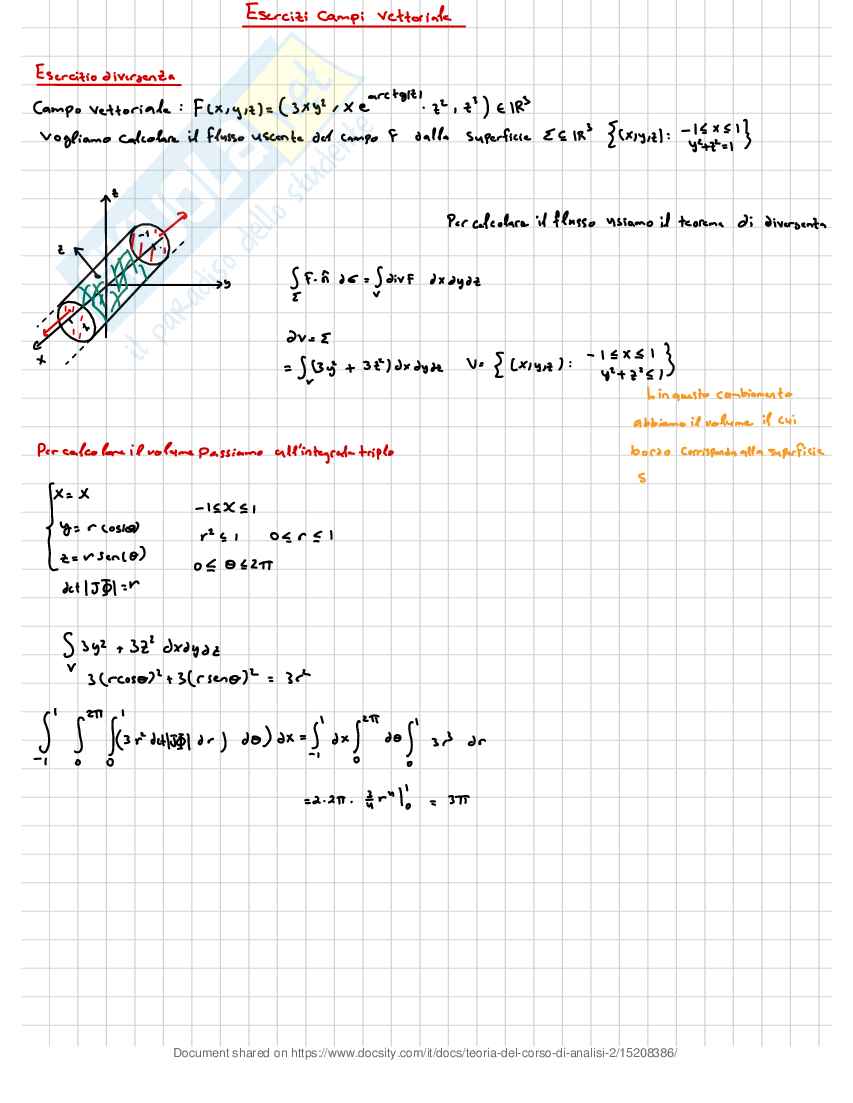 Esercizi Campi Vettoriale
Esercitio divergenza
Campo Vettoriale : F(x,y,z)=(3xy², xe^{arctg(z)} · z², z³) ∈ ℝ³
Vogliamo Calcolare il flusso uscente del campo F dalla superficie Σ⊆ℝ³ {(x,y,z): -1≤x≤1
y²+z²=1}
z
y
x
Per calcolare il flusso usiamo il teorema di divergenza
∫_Σ F·n̂ dσ = ∫_V divF dxdydz
∂V=Σ
= ∫_V (3y² + 3z²) dxdydz V= {(x,y,z): -1≤x≤1
y²+z²≤1}
in questo cambiamento
abbiamo il volume il cui
bordo corrisponde alla superficie
S
Per calcolare il volume Passiamo all'integrale triplo
x= x
y= r cos(θ)
z= r sen(θ)
-1≤x≤1
r²≤1 0≤r≤1
0≤θ≤2π
det|JΦ|=r
∫_V 3y² + 3z² dxdydz
3(rcosθ)²+3(rsenθ)² = 3r²
∫_{-1}^{1} ∫_0^{2π} ∫_0^1 (3r² det|JΦ| dr) dθ) dx = ∫_{-1}^{1} dx ∫_0^{2π} dθ ∫_0^1 3r³ dr
=2·2π· 3/4 r⁴|_0^1 = 3π
il paradiso dello studente
Document shared on https://www.docsity.com/it/docs/teoria-del-corso-di-analisi-2/15208386/